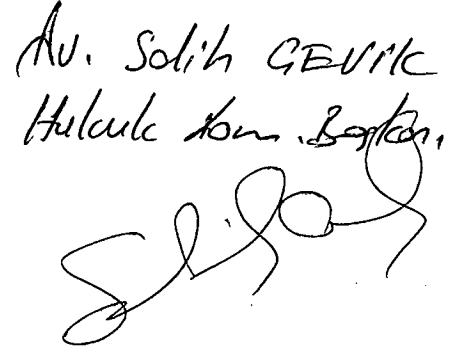 Av. Salih GEVİK
Hukuk Kom. Başkan.